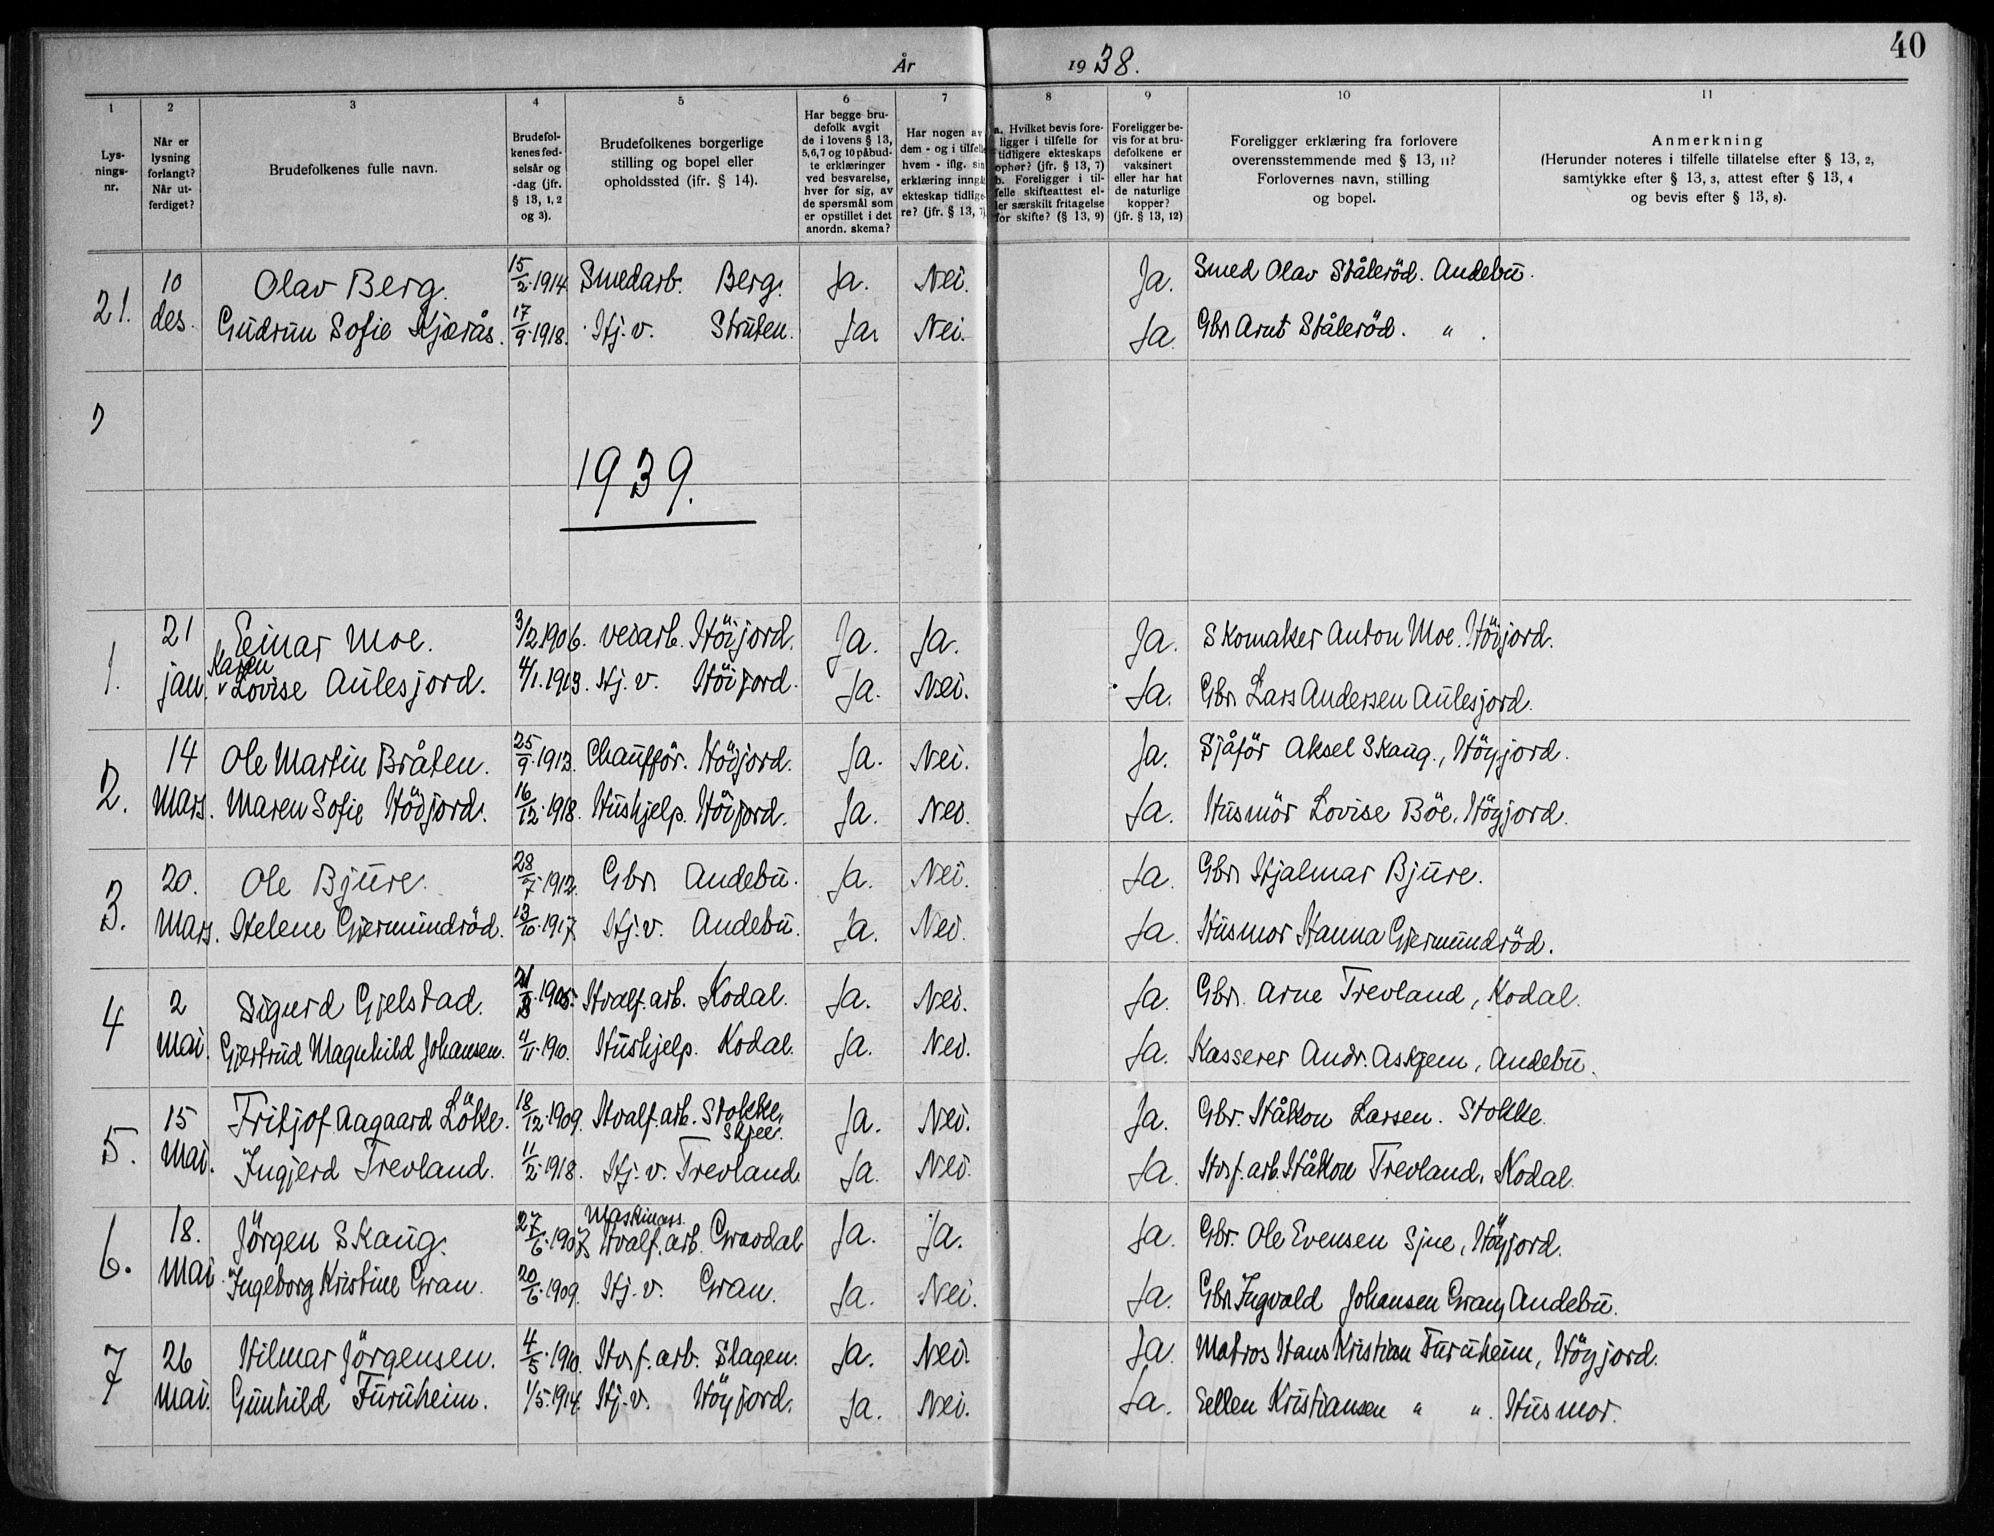 40
År 1938.
1 2 3 4 5 6 7 8 9 10 11
Lys-
nings-
nr.
Når er
lysning
forlangt?
Når ut-
ferdiget?
Brudefolkenes fulle navn.
Brudefol-
kenes fød-
selsår og
-dag (jfr.
§ 13, 1, 2
og 3).
Brudefolkenes borgerlige
stilling og bopel eller
opholdssted (ifr. § 14).
Har begge bru-
defolk avgit
de i lovens § 13,
5,6,7 og 10 påbud-
te erklæringer
ved besvarelse,
hver for sig, av
de spørsmål som
er opstillet i det
anordn. skema?
Har nogen av
dem - og i tilfelle
hvem - iflg. sin
erklæring inngåt
ekteskap tidlige-
re? (jfr. § 13, 7)
a. Hvilket bevis fore-
ligger i tilfelle for
tidligere ekteskaps
ophør? (jfr. § 13, 7)
b. Foreligger i til-
felle skifteattest el-
ler særskilt fritagelse
for skifte? (§ 13, 9)
Foreligger be-
vis for at bru-
defolkene er
vaksinert
eller har hat
de naturlige
kopper?
(jfr. § 13, 12)
Foreligger erklæring fra forlovere
overensstemmende med § 13, 11?
Forlovernes navn, stilling
og bopel.
Anmerkning
(Herunder noteres i tilfelle tillatelse efter § 13, 2,
samtykke efter § 13, 3, attest efter § 13, 4
og bevis efter § 13, 8).
21. 10 Olav Berg. 15/2.1914 Smedarb. Berg. Ja. Nei. Ja. Smed Olav Ståleröd. Andebu.
des. Gudrun Sofie Hjærås. 17/9.1918. Hj.v. Struten. Ja. Nei. Ja. Gbr. Arnt Ståleröd. " .
1939.
1. 21 Einar Moe. 3/2 1906. veiarb. Höijord. Ja. Ja. Ja. Skomaker Anton Moe. Höijord.
jan. Karen
Lovise Aulesjord. 4/1.1913. Hj.v. Höijord. Ja. Nei. Ja. Gbr. Lars Andersen Aulesjord.
2. 14 Ole Martin Bråten. 25/9.1913. Chaufför. Höijord. Ja. Nei. Ja. Sjåför Aksel Skaug., Höyjord.
Mars. Maren Sofie Höijord. 16/12.1918. Hushjelp. Höijord. Ja. Nei. Ja. Husmör Lovise Böe. Höyjord.
3. 20. Ole Bjure. 28/7.1912. Gbr. Andebu. Ja. Nei. Ja. Gbr. Hjalmar Bjure.
Mars. Helene Gjermundröd. 13/10.1917. Hj.v. Andebu. Ja. Nei. Ja. Husmor Hanna Gjermundröd.
4 2 Sigurd Gjelstad. 1905. Hvalf.arb. Kodal. Ja. Nei. Ja. Gbr. Arne Trevland, Kodal.
Mai. Gjertrud Magnhild Johansen. 4/11.1910. Hushjelp. Kodal. Ja. Nei. Ja. Kasserer Andr. Askjem, Andebu.
5. 15 Fritjof Aagaard Lökke. 18/12.1909. Hvalf.arb. Stokke, Ja. Nei. Ja. Gbr. Håkon Larsen. Stokke.
Skjee.
Mai. Ingjerd Trevland. 11/2.1918. Hj.v. Trevland. Ja. Nei. Ja. Hvf.arb. Håkon Trevland, Kodal.
Maskinass.
6. 18. Jörgen Skaug. 27/6.1907 Hvalf.arb. Gravdal Ja. Ja. Ja. Gbr. Ole Evensen Sjue, Höyjord.
Mai Ingeborg Kristine Gran. 20/6.1909. Hj.v. Gran. Ja. Nei. Ja. Gbr. Ingvald Johansen Gran, Andebu.
7 26 Hilmar Jörgensen. 4/5.1910. Hvf.arb. Slagen. Ja. Nei. Ja. Matros Hans Kristian Furuheim, Höyjord.
Mai. Gunhild Furuheim. 1/5.1914. Hj.v. Höyjord. Ja. Nei. Ja. Ellen Kristiansen " ". Husmor.